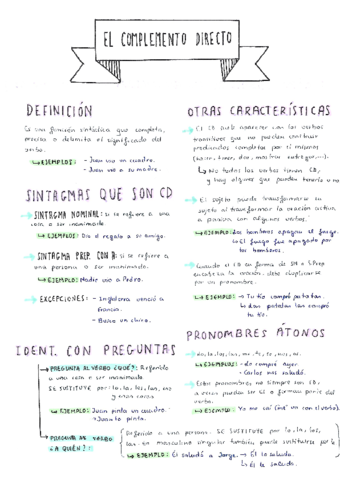 EL COMPLEMENTO DIRECTO
DEFINICIÓN
Es una función sintáctica que completa,
precisa o delimita el significado del
verbo.
EJEMPLOS: - Juan vio un cuadro.
- Juan vio a su madre.
SINTAGMAS QUE SON CD
SINTAGMA NOMINAL: si se refiere a una
cosa o ser inanimado.
EJEMPLOS: Dio el regalo a su amigo.
SINTAGMA PREP. CON A: si se refiere a
una persona o ser
EJEMPLO: Madrid vio a Pedro.
EXCEPCIONES: - Inglaterra venció a
Francia.
- Busco un chico.
IDENT. CON PREGUNTAS
PREGUNTA AL VERBO ¿QUÉ?: Referido
a una cosa o ser inanimado.
SE SUSTITUYE por: lo, la, los, las,
EJEMPLO: Juan pinta un cuadro.
Juan lo pinta.
PREGUNTA AL VERBO
¿A QUIÉN?:
Referido a una persona. SE SUSTITUYE por lo, la, los,
las. en masculino singular también puede sustituirse por le
EJEMPLO: Él saludó a Jorge. → Él lo saluda.
Él le saluda.
OTRAS CARACTERÍSTICAS
El CD suele aparecer con los verbos
transitivos que no pueden constituir
predicados completos por sí mismos
(hacer, tener, dar, mostrar, entregar,...).
No todos los verbos tienen CD,
y hay algunos que pueden tenerlo o no
El sujeto puede transformarse en
al transformar la oración activa
a pasiva con algunos verbos.
EJEMPLO: Los bomberos apagan el fuego.
El fuego fue apagado por
los bomberos.
Cuando el CD en forma de SN o S.Prep
la oración, debe duplicarse
por un pronombre.
EJEMPLO: → Tu tío compró patatas.
Las patatas las compró
tu tío.
PRONOMBRES ÁTONOS
lo, la, los, las, me, te, se, nos, os.
EJEMPLOS: - Lo compré ayer.
- Carlos nos saludó.
Estos pronombres no siempre son CD,
a veces pueden ser CI o formar parte del
verbo.
EJEMPLO: Yo me caí